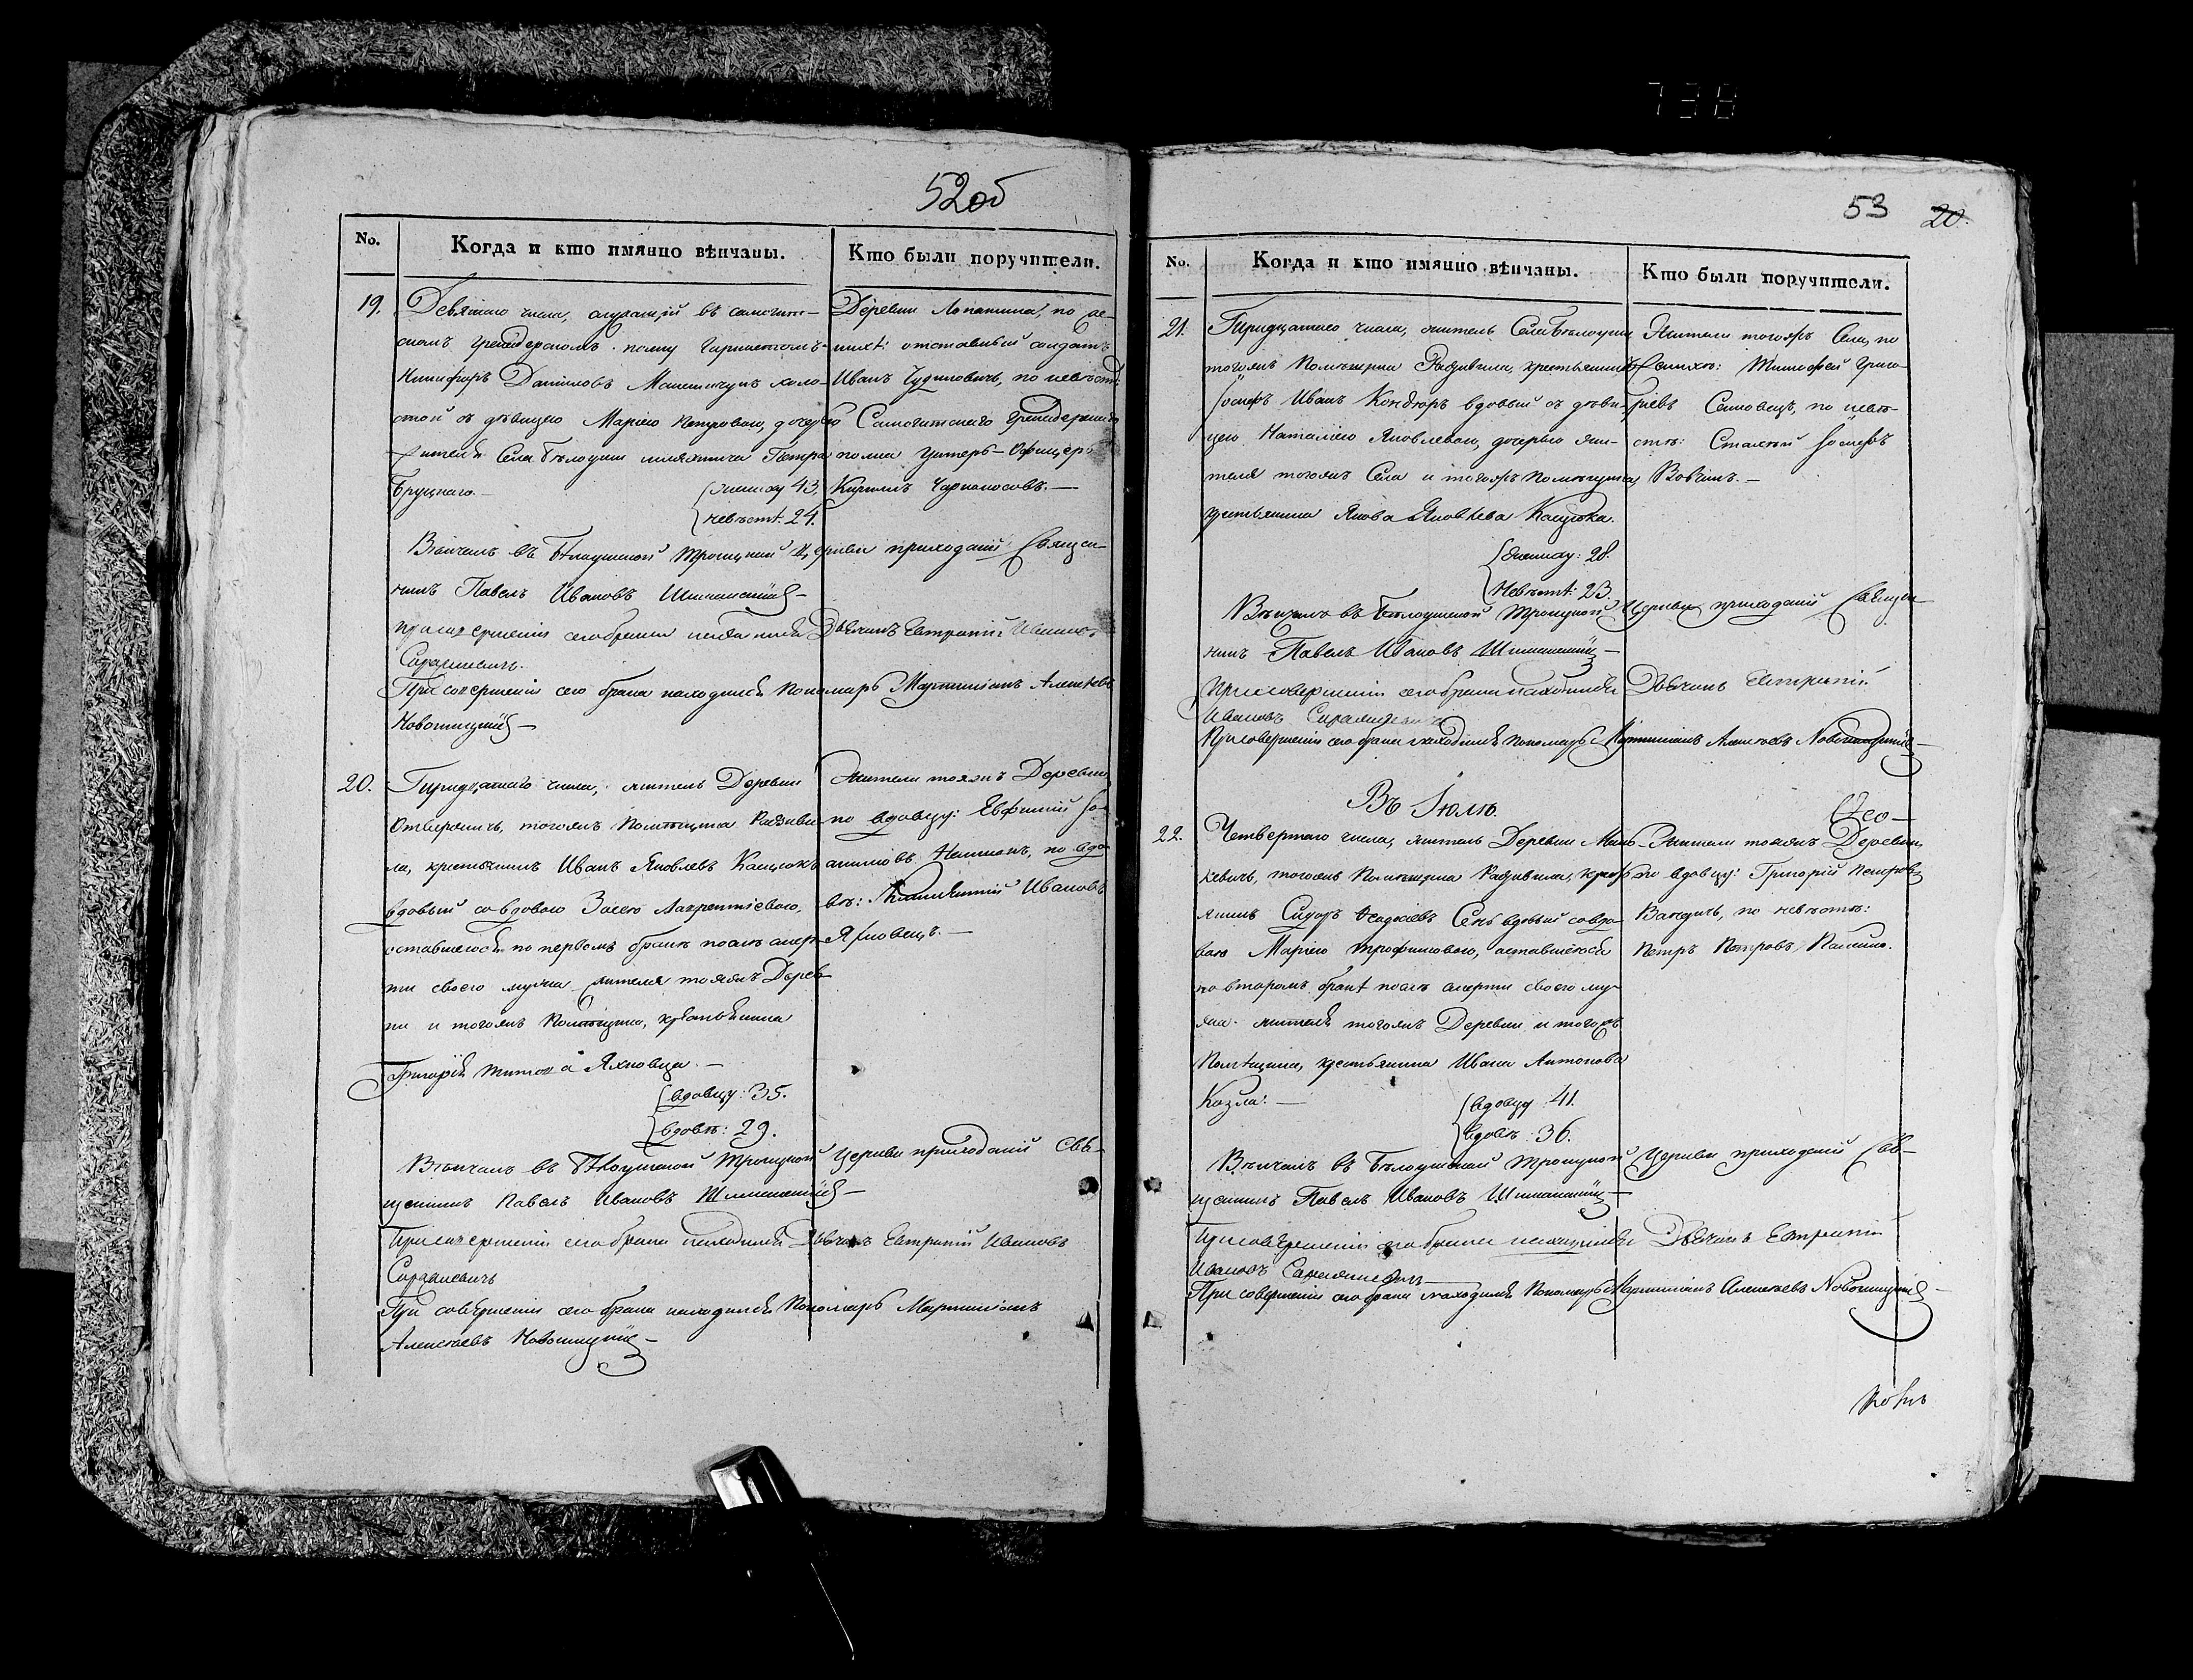 738
52об
No.
Когда и кто имянно вѣнчаны.
Кто были поручители.
19.
Девятаго числа, служащій въ самогит-
скомъ Гренадерскомъ полку
Никифоръ Даниловъ холо-
стой съ дѣвицею Маріею Петровою, дочерью
жителя Села Бѣлоуши шляхтича Петра
Жениху 43.
невѣстѣ: 24.
Деревни Лопатина, по же-
нихѣ: отставный солдатъ
Иванъ по невѣстѣ:
Самогитскаго Гренадерскаго
полка Унтеръ-Офицеръ
Вѣнчалъ въ Бѣлоушской Троицкой Церкви приходскій Священ-
никъ Павелъ Ивановъ
при совершеніи сего брака находился Дьячокъ Евтропій Ивановъ
При совершеніи сего брака находился Пономарь Мартиніанъ Алексѣевъ
Новоницкій
20.
Тридцатаго числа, житель Деревни
Отвержичъ, тогожъ Помѣщика Радзиви-
ла, крестьянинъ Иванъ Яковлевъ Кащюкъ
вдовый со вдовою Лаврентіевою,
оставшеюся по первомъ бракѣ послѣ смер-
ти своего мужа жителя тояжъ Дерев-
ни и тогожъ Помѣщика, крестьянина
Григорія Титова Яхновца. —
вдовцу: 35.
вдовѣ: 29.
Жители тояжъ Деревни,
по вдовцу: Евфимій Іо-
акимовъ по вдо-
вѣ: Ивановъ
Яхновецъ. —
Вѣнчалъ въ Бѣлоушской Троицкой Церкви приходскій Свя-
щенникъ Павелъ Ивановъ
При совершеніи сего брака находился Дьячокъ Евтропій Ивановъ
При совершеніи сего брака находился Пономарь Мартиніанъ
Алексѣевъ Новоницкій
53 20.
No.
Когда и кто имянно вѣнчаны.
Кто были поручители.
21.
Тридцатаго числа, житель Села Бѣлоуши
тогожъ Помѣщика Радзивила, крестьянинъ
Іосифъ Иванъ Кондюръ вдовый съ дѣви-
цею Наталіею Яковлевою, дочерью жи-
теля тогожъ Села и тогожъ Помѣщика,
крестьянина Якова Яковлева Кащюка.
жениху: 28.
Невѣстѣ: 23.
Жители тогожъ Села, по
женихѣ: Тимофей Григо-
ріевъ по невѣ-
стѣ: Іосифъ
Вовчикъ. —
Вѣнчалъ въ Бѣлоушской Троицкой Церкви приходскій Священ-
никъ Павелъ Ивановъ
При совершеніи сего брака находился Дьячокъ Евтропій
Ивановъ
При совершеніи сего брака находился Пономарь Мартиніанъ Алексѣевъ Новоницкій
Въ Іюлѣ.
22.
Четвертаго числа, житель Деревни
тогожъ Помѣщика Радзивила, кресть-
янинъ Сидоръ вдовый со вдо-
вою Маріею Трофимовою, оставшеюся
по второмъ бракѣ послѣ смерти своего му-
жа жителя тогожъ Деревни и тогожъ
Помѣщика, крестьянина Ивана Антонова
Козла. —
вдовцу: 41.
вдовѣ: 36.
Жители тояжъ Деревни,
по вдовцу: Григорій Петровъ
по невѣстѣ:
Петръ Петровъ
Вѣнчалъ въ Бѣлоушской Троицкой Церкви приходскій Свя-
щенникъ Павелъ Ивановъ
При совершеніи сего брака находился Дьячокъ Евтропій
Ивановъ
При совершеніи сего брака находился Пономарь Мартиніанъ Алексѣевъ Новоницкій